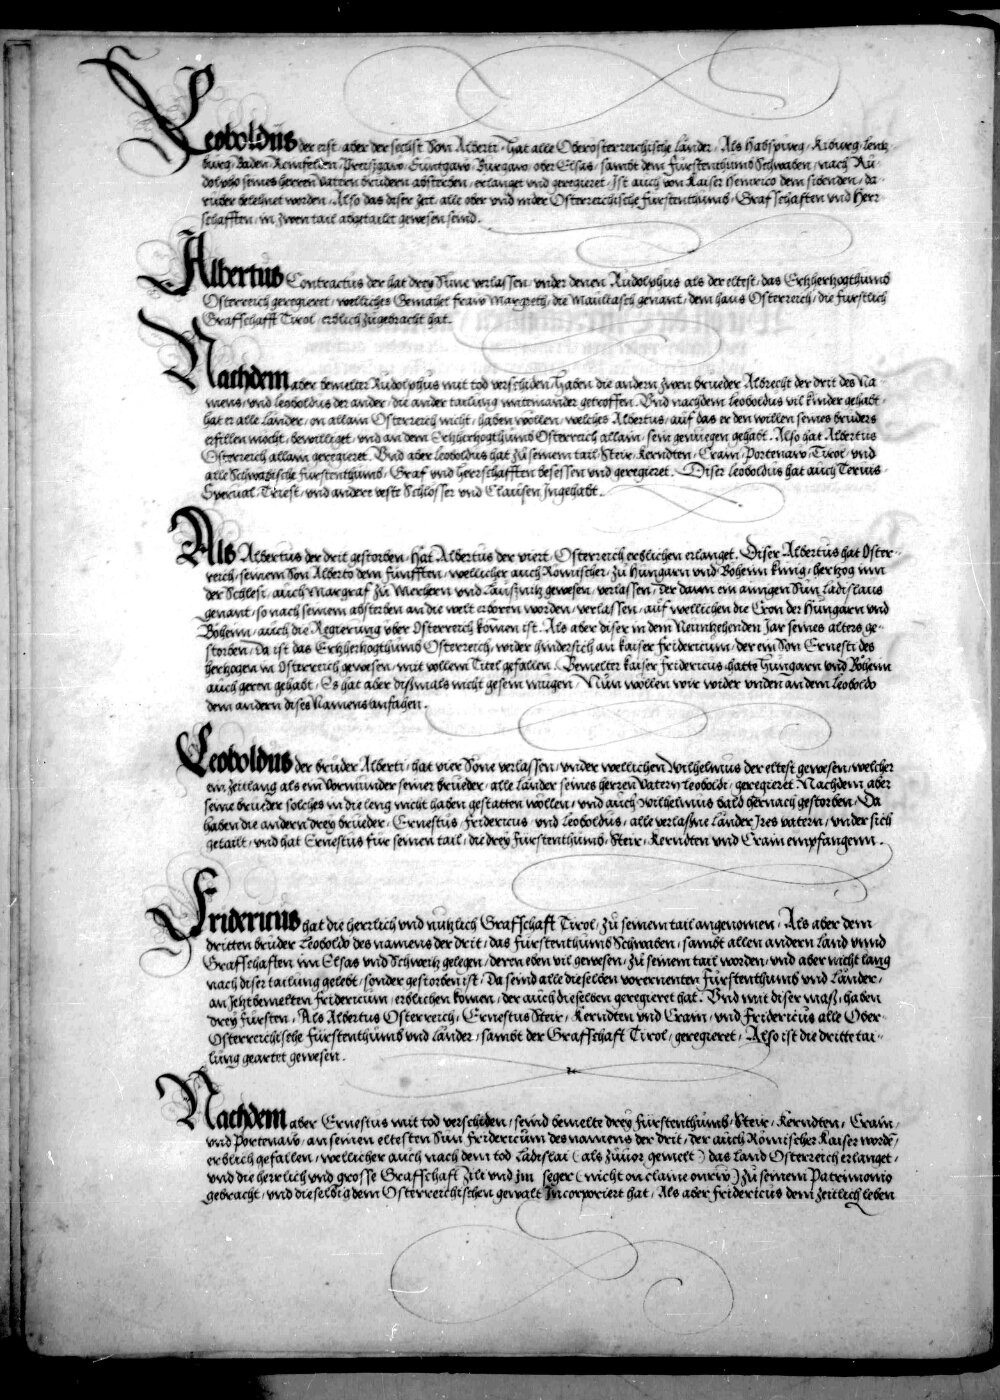 Leoboldus der erst, aber der sechst Son Alberti, hat alle Oberösterreichische Länder, Als Habspurg, Kiburg, Lentz-
burg, Baden, Reinfelden, Breisgaw, Suntgaw, Burgaw, ober Elsas, sambt dem Fürstenthumb Schwaben, nach Rü-
dolpho seines herren vattern brudern absterben, erlanget vnd geregieret. Ist auch von Kaiser Henrico dem sibenden, da-
rüber belehnet worden. Also das diser Zeit, alle ober vnd nider Österreichische Fürstenthumb, Grafschaften vnd Herr-
schafften, in zwen tail abgetailt gewesen seind.
Albertus Contractus der hat drey Süne verlassen, vnder denen Rudolphus als der eltest, das Ertzhertzogthumb
Österreich geregieret, welliches Gemahel fraw Margreth, die Maultasch genant, dem haus Österreich, die fürstlich
Grafschafft Tirol, erblich zugebracht hat.
Nachdem aber bemelter Rudolphus mit tod verschiden, haben die andern zwen brueder Albrecht der drit des Na-
mens, vnd Leoboldus der ander, die ander tailung miteinander getroffen. Vnd nachdem Leoboldus vil kinder gehabt,
hat er alle Länder, on allain Österreich nicht, haben wöllen, welches Albertus, auf das er den willen seines bruders
erfillen möcht, bewilliget, vnd an dem Ertzhertzogthumb Österreich allain, sein genüegen gehabt. Also hat Albertus
Österreich allain geregieret. Vnd aber Leoboldus hat zu seinem tail, Steir, Kerndten, Crain, Portenaw, Tirol, vnd
alle Schwäbische Fürstenthumb, Graf vnd Herrschafften besessen vnd geregieret. Diser Leoboldus hat auch Teruis,
Triest, vnd andere veste Schlösser vnd Clausen Ingehabt.
Als Albertus der drit gestorben, Hat Albertus der viert, Österreich erblichen erlanget. Diser Albertus hat Öster-
reich, seinem Son Alberto dem fünfften, wellicher auch Römischer, zu Hungarn vnd Bohem Künig, hertzog inn
der Schlesi, auch Margraf zu Merhern vnd Laußnitz gewesen, verlassen, der dann ein ainigen Sun Ladislaus
genant, so nach seinem absterben an die welt erboren worden, verlassen, auf wellichen die Cron der Hungarn vnd
Bohem, auch die Regierung vber Österreich komen ist. Als aber diser in dem Neuntzehenden Jar seines alters ge-
storben, Da ist das Ertzhertzogthumb Österreich, wider hindersich an kaiser Fridericum, der ein Son Ernesti des
hertzogen in Österreich gewesen, mit vollem Titel gefallen. Bemelter kaiser Fridericus hatte Hungarn vnd Böhem
auch geren gehabt, Es hat aber dißmals nicht gesein mugen. Nun wöllen wir wider vnden an dem Leoboldo
dem andern dises Namens anfahen.
Leoboldus der bruder Alberti, hat vier Söne verlassen, vnder wellichen Wilhelmus der eltest gewesen, welcher
ein zeitlang als ein Vormünder seiner brueder, alle Länder seines herren Vatern Leoboldi, geregieret. Nachdem aber
seine brueder solches in die leng nicht haben gestatten wöllen, vnd auch Wilhelmus bald hernach gestorben, Da
haben die andern drey brueder, Ernestus, Fridericus vnd Leoboldus, alle verlassne Länder Jres vatern, vnder sich
getailt, vnd hat Ernestus für seinen tail, die drey Fürstenthumb, Steir, Kerndten vnd Crain empfangenn.
Fridericus hat die herrlich vnd nutzlich Grafschaft Tirol, zu seinem tail angenomen, Als aber dem
dritten bruder Leoboldo des namens der drit, das Fürstenthumb Schwaben, sambt allen andern Land vnnd
Grafschaften im Elsas vnd Schweitz gelegen, deren eben vil gewesen, zu seinem tail worden, vnd aber nicht lang
nach diser tailung gelebt, sonder gestorben ist, Da seind alle dieselben vorernenten Fürstenthumb vnd Länder,
an Jetzt bemelten Fridericum, erblichen komen, der auch dieselben geregieret hat. Vnd mit diser maß, haben
drey Fürsten, Als Albertus Österreich, Ernestus Steir, Kerndten vnd Crain, vnd Fridericus alle Ober-
Österreichische Fürstenthumb vnd Länder, sambt der Grafschaft Tirol, geregieret, Also ist die dritte tai-
lung geartet gewesen.
Nachdem aber Ernestus mit tod verschiden, seind bemelte drey Fürstenthumb, Steir, Kerndten, Crain,
vnd Portenaw, an seinen eltesten Sun Fridericum des namens der drit, der auch Römischer Kaiser wordē,
erblich gefallen, wellicher auch nach dem tod Ladislai (als zuuor gemelt) das Land Österreich erlanget,
vnd die herrlich vnd grosse Grafschaft Zili vnd im seger (nicht on claine) zu seinem Patrimonio
gebracht, vnd dieselbig dem Österreichischen gewalt Incorporiert hat, Als aber Fridericus dem zeitlich leben